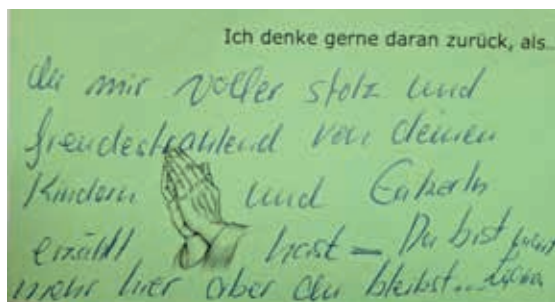 Ich denke gerne daran zurück, als...
du mir voller stolz und
freudestrahlend von deinen
Kindern und Enkerln
erzählt hast – Du bist
mehr hier aber du bleibst...